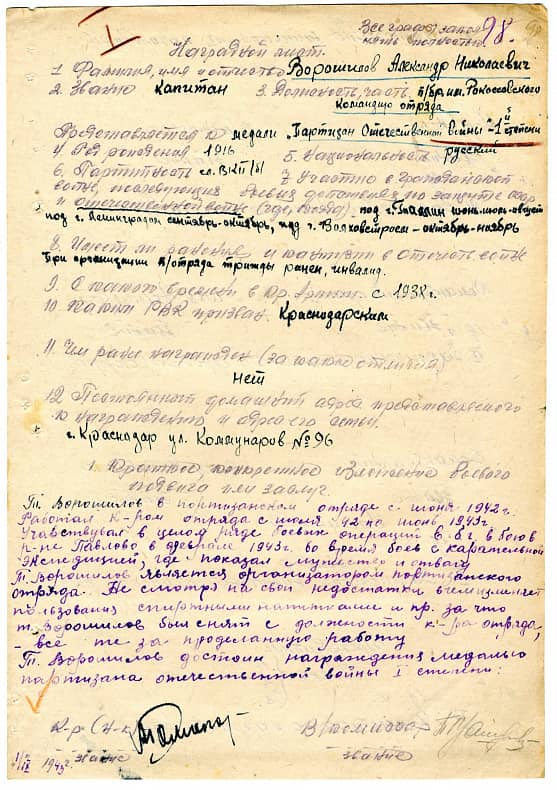 Все графы запол
нять полностью
98.
Наградной лист.
1. Фамилия, имя и отчество Ворошилов Александр Николаевич
2. Звание капитан 3. Должность, часть п/бр. им. Рокоссовского
командир отряда
Представляется к медали „Партизан Отечественной войны"-1й степени
4. Год рождения 1916 5. Национальность
русский
6. Партийность чл. ВКП/б/ 7. Участие в гражданской
войне, последующих боевых действиях по защите СССР
и отечественной войне (где, когда) под г. Таллин июнь-июль-август
под г. Ленинградом сентябрь-октябрь, под г. Волховстроем - октябрь-ноябрь
8. Имеет ли ранения и контузии в отечеств. войне
При организации п/отряда трижды ранен, инвалид.
9. С какого времени в Кр. Армии с 1938 г.
10. Каким РВК призван Краснодарским
11. Чем ранее награжден (за какие отличия)
нет
12. Постоянный домашний адрес представляемого
к награждению и адрес его семьи.
г. Краснодар ул. Коммунаров № 96
1. Краткое, конкретное изложение боевого
подвига или заслуг.
Т. Ворошилов в партизанском отряде с июня 1942 г.
Работал к-ром отряда с июля 42 по июнь 1943 г.
Участвувал в целом ряде боевых операций в б-г, в боев
р-не Павлово в феврале 1943 г. во время боев с карательной
экспедицией, где показал мужество и отвагу
Т. Ворошилов является организатором партизанского
отряда. Не смотря на свои недостатки
пользования спиртными напитками и пр. за что
т. Ворошилов был снят с должности к-ра отряда,
- все же за проделанную работу
Т. Ворошилов достоин награждения медалью
партизана отечественной войны I степени:
К-р (Н-к В/комиссар
звание звание
1943 г.